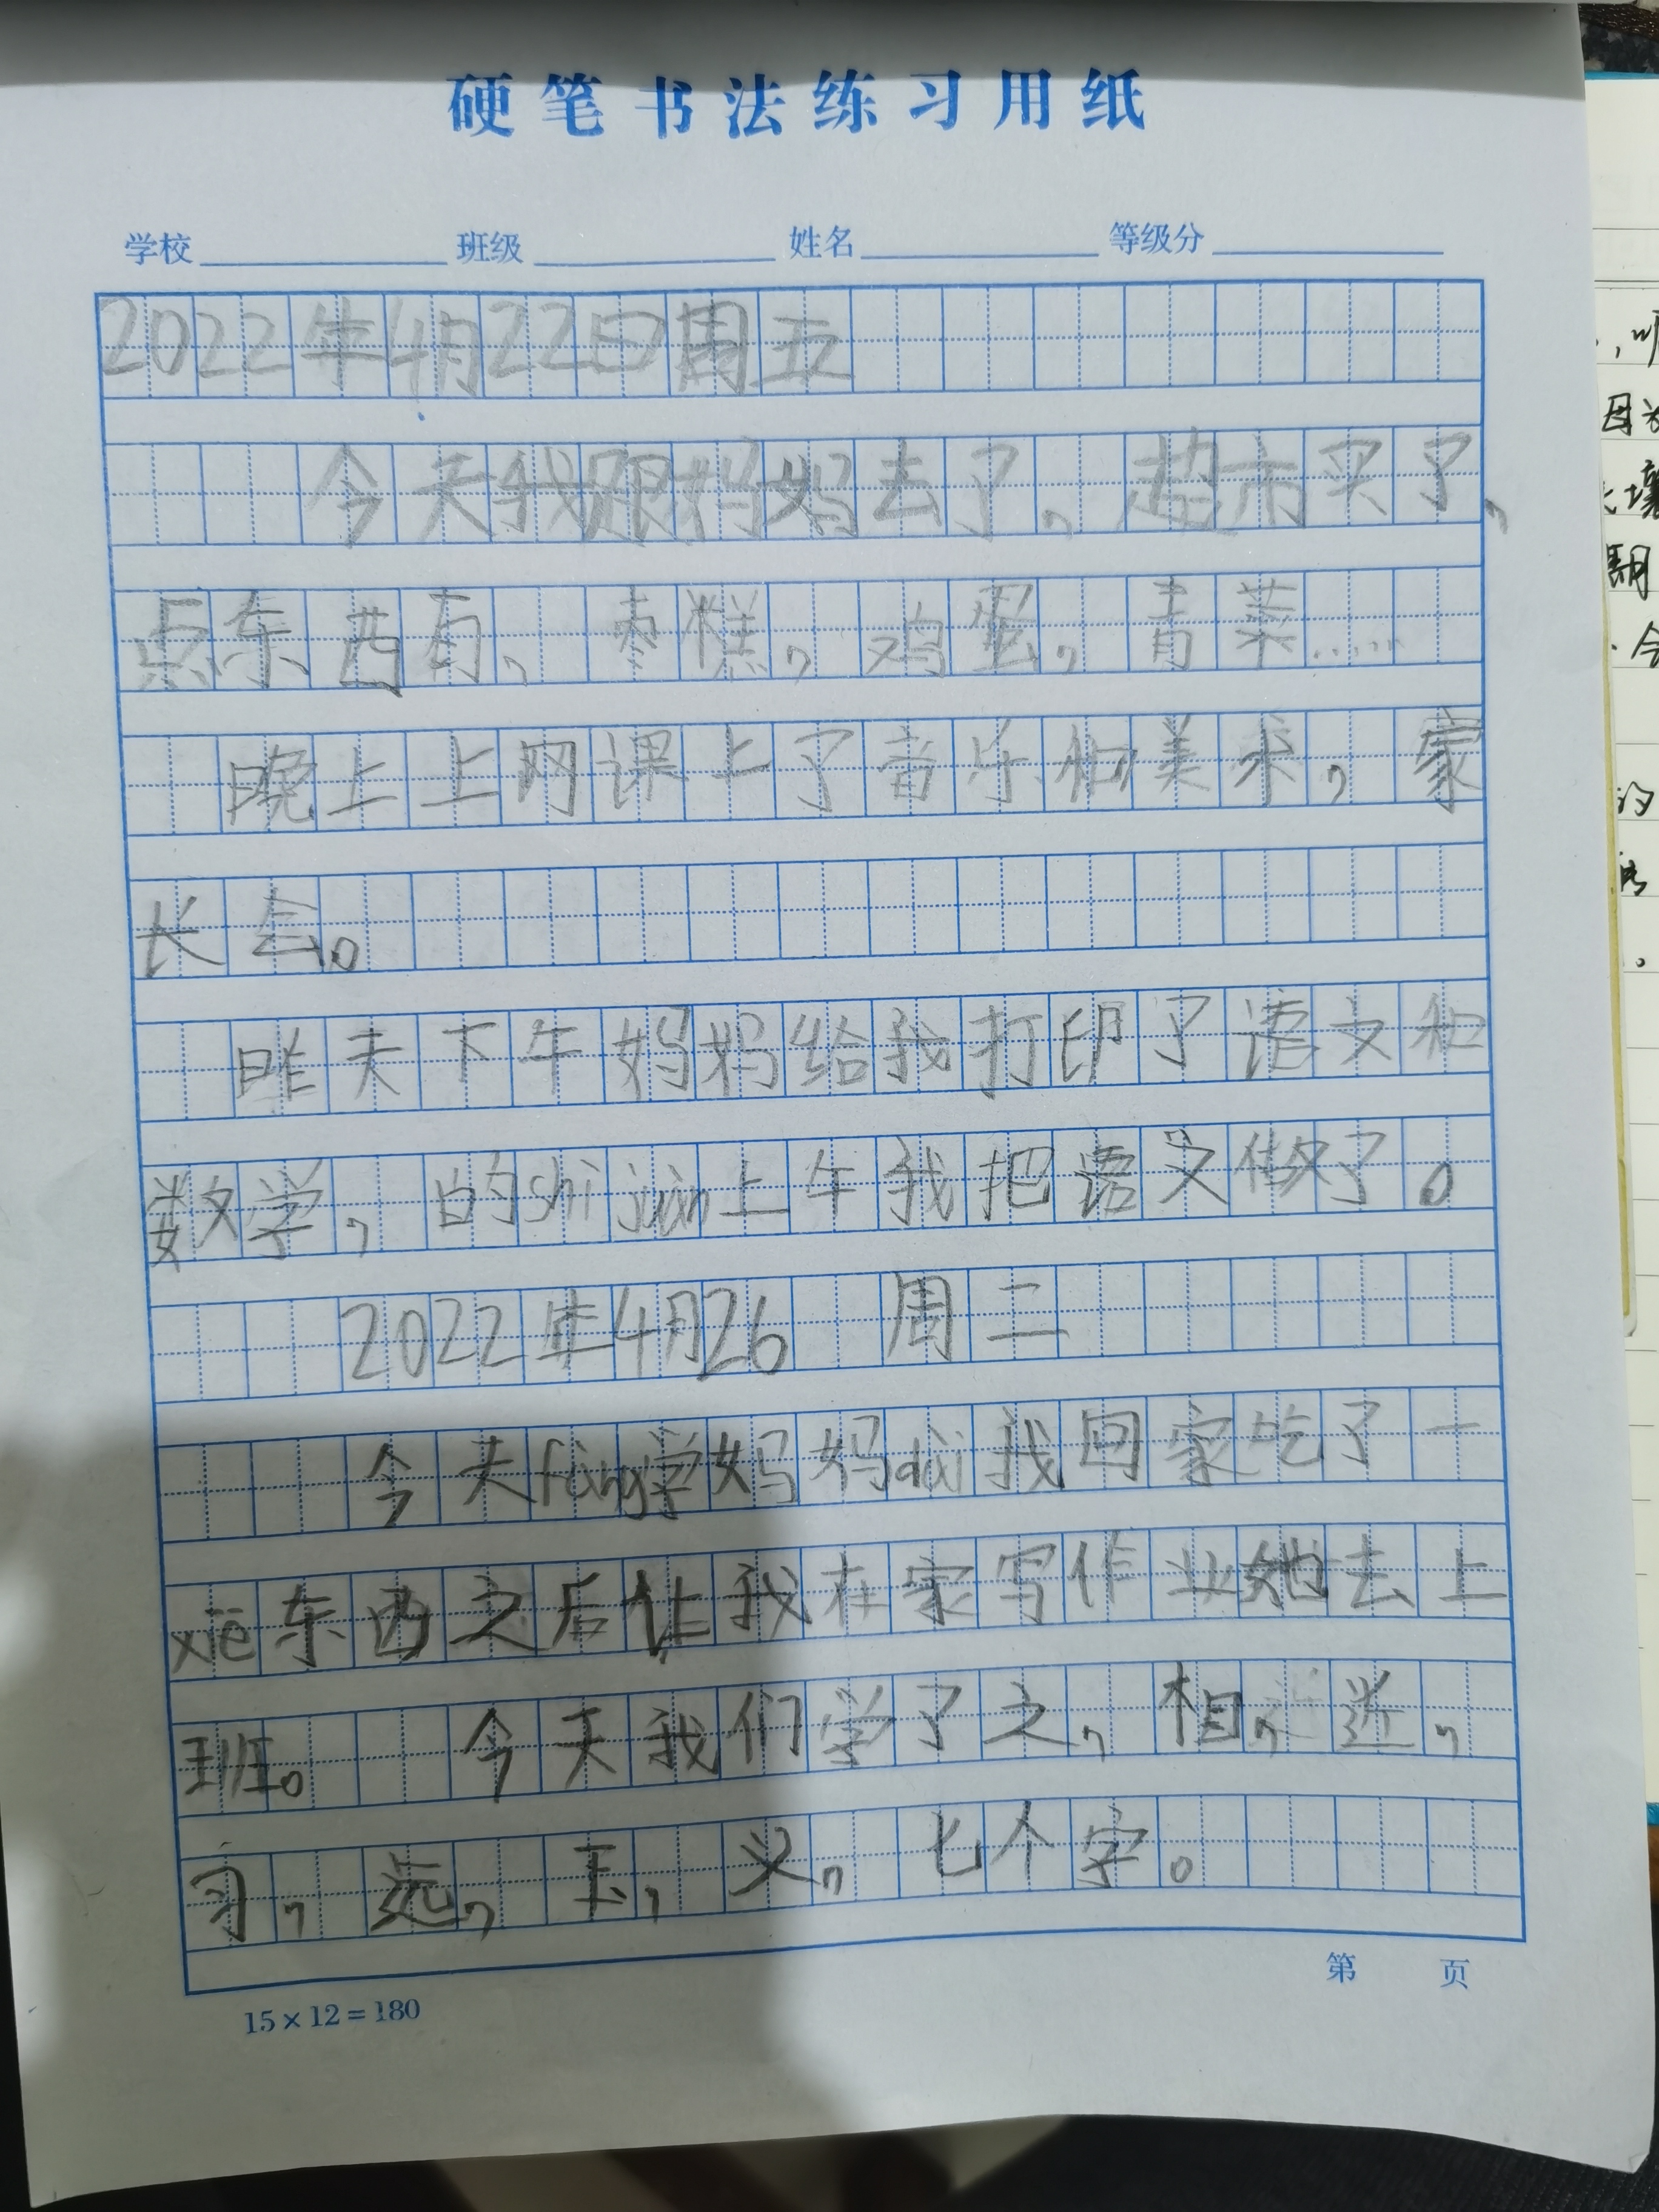 硬笔书法练习用纸
学校 班级 姓名 等级分
2022年4月22日周五
今天我跟妈妈去了，超市买了，
点东西有，枣糕，鸡蛋，青菜……
晚上上网课上了音乐和美术，家
长会。
昨天下午妈妈给我打印了语文和
数学，的shi juàn上午我把语文做了。
2022年4月26 周二
今天fàng学妈妈dài我回家吃了一
xiē东西之后让我在家写作业她去上
班。 今天我们学了之，相，近，
习，远，玉，义，七个字。
第 页
15×12=180